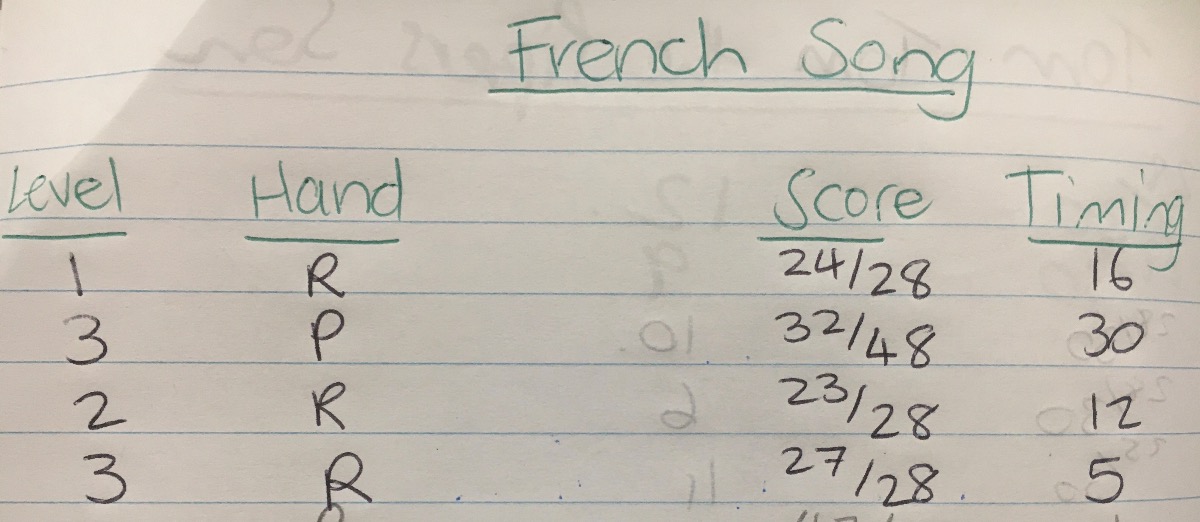 French Song
Level Hand Score Timing
1 R 24/28 16
3 P 32/48 30
2 R 23/28 12
3 R 27/28 5